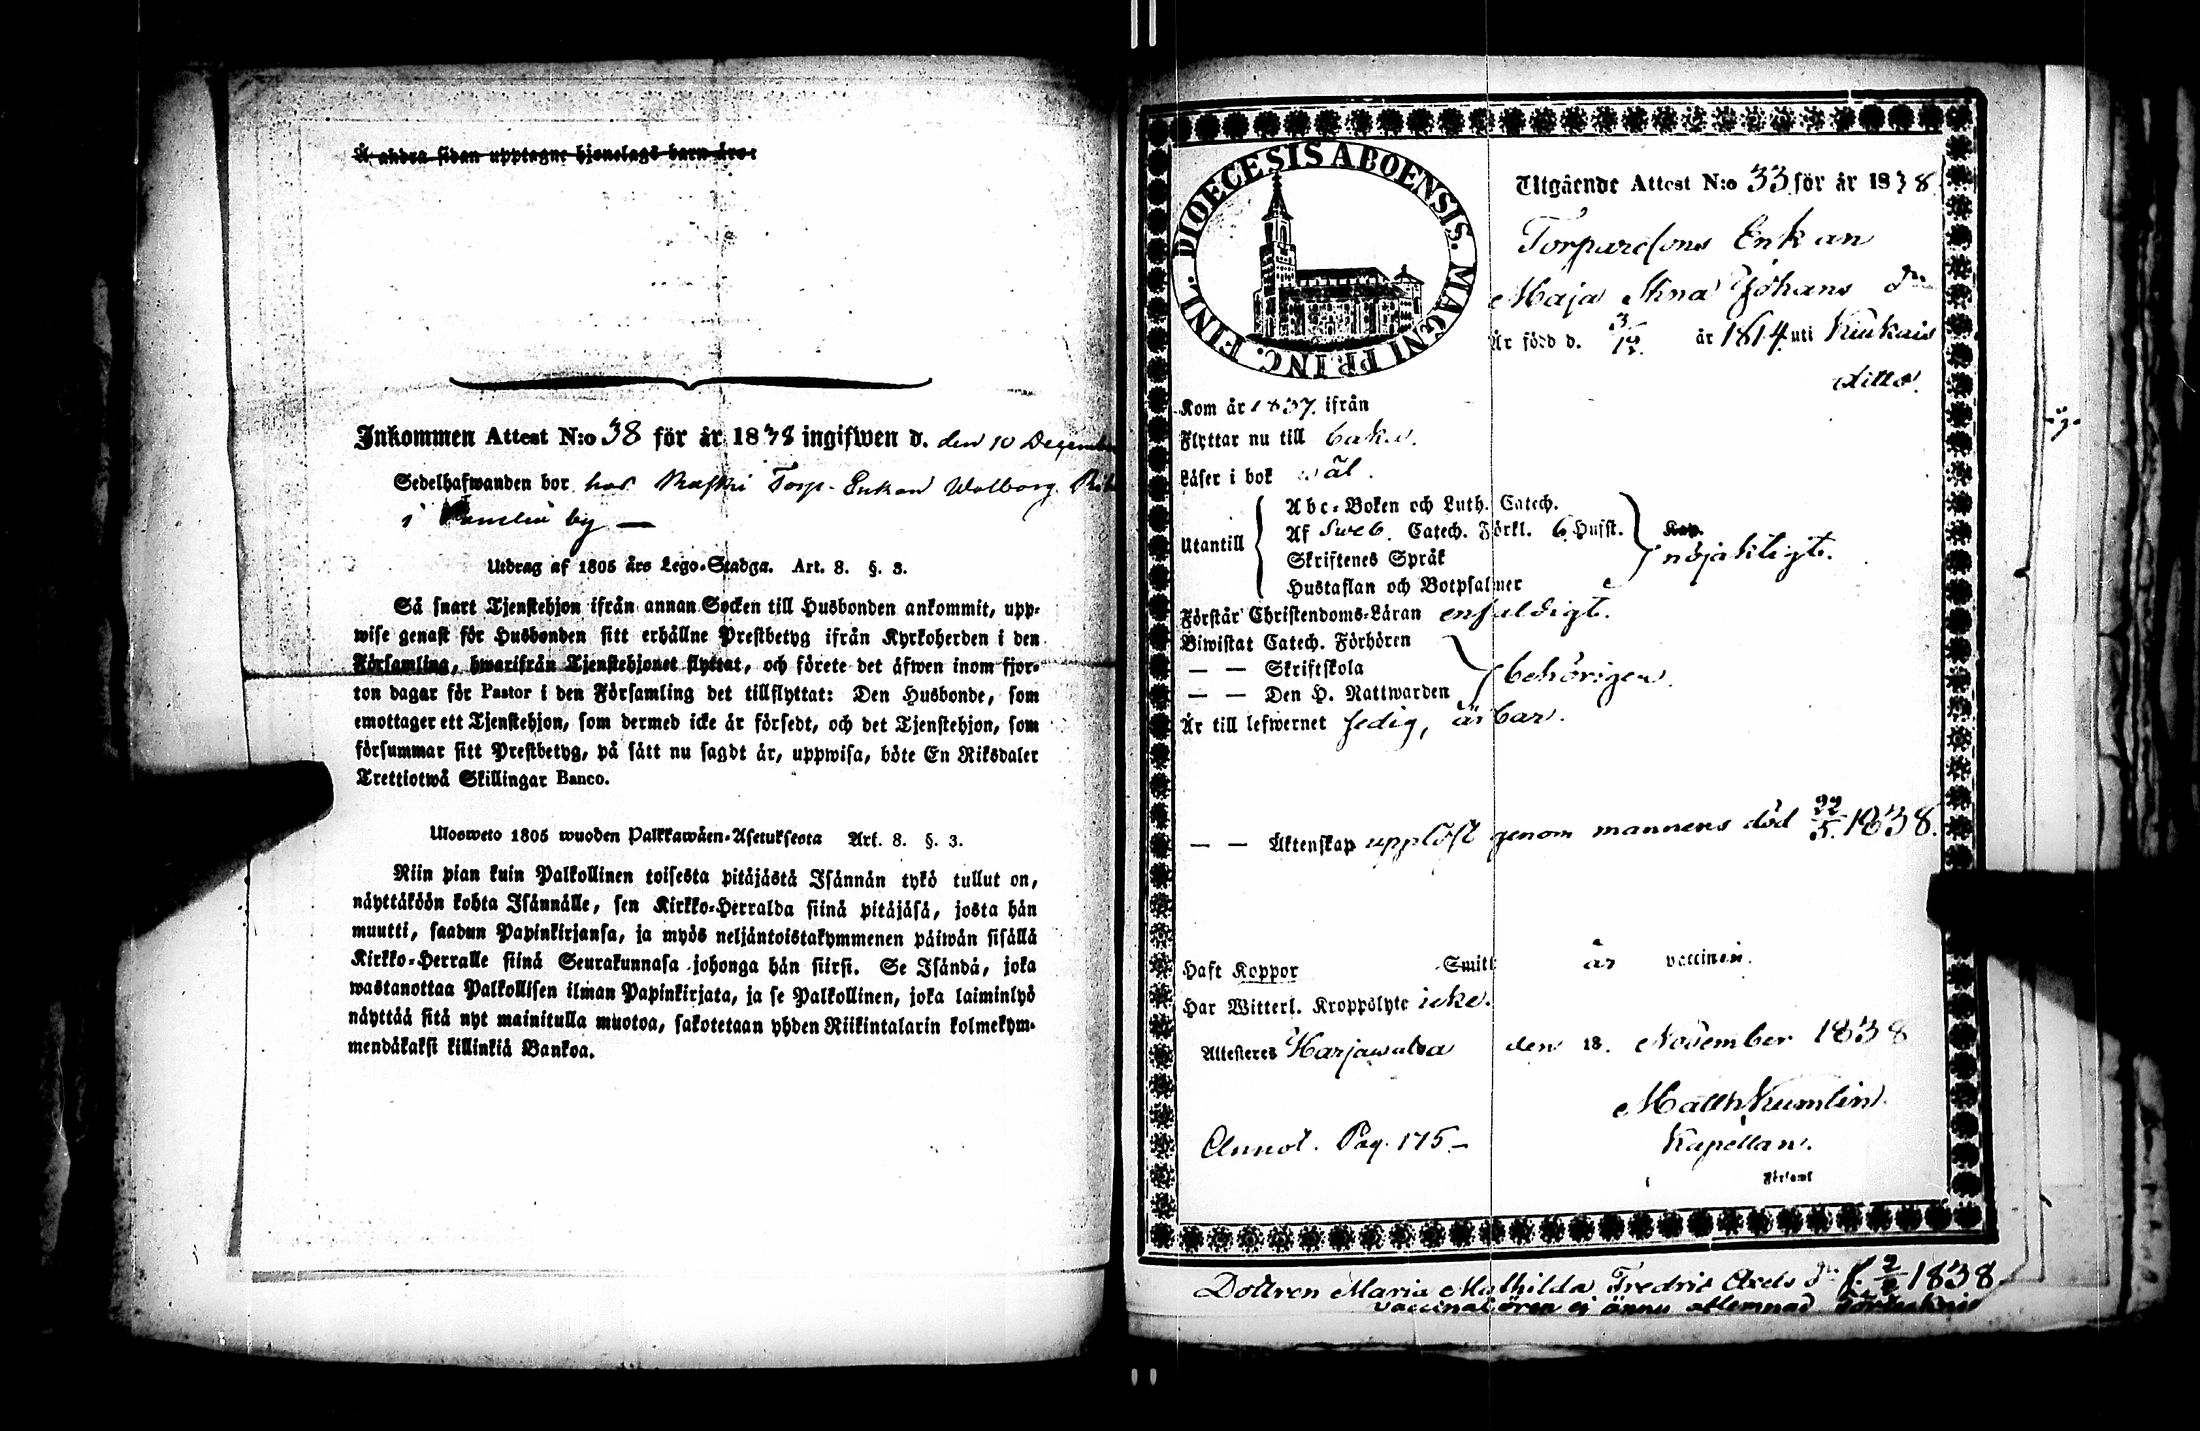 Å andra sidan upptagne hjonelags barn äro:
Inkommen Attest N:o 38 för år 1838 ingifwen d. den 10 December
Sedelhafwanden bor hos Torp. Enkan Walborg
i by —
Utdrag af 1805 års Lego-Stadga. Art. 8. §. 3.
Så snart Tjenstehjon ifrån annan Socken till Husbonden ankommit, upp-
wise genast för Husbonden sitt erhållne Prestbetyg ifrån Kyrkoherden i den
Församling, hwarifrån Tjenstehjonet flyttat, och förete det äfwen inom fjor-
ton dagar för Pastor i den Församling det tillflyttat: Den Husbonde, som
emottager ett Tjenstehjon, som dermed icke är försedt, och det Tjenstehjon, som
försummar sitt Prestbetyg, på sätt nu sagdt är, uppwisa, böte En Riksdaler
Trettiotwå Skillingar Banco.
Ulosweto 1805 wuoden Palkkawäen-Asetuksesta Art. 8. §. 3.
Niin pian kuin Palkollinen toisesta pitäjästä Isännän tykö tullut on,
näyttäköön kohta Isännälle, sen Kirkko-Herralda siinä pitäjäsä, josta hän
muutti, saadun Papinkirjansa, ja myös neljäntoistakymmenen päiwän sisällä
Kirkko-Herralle siinä Seurakunnasa johonga hän siirsi. Se Isändä, joka
wastanottaa Palkollisen ilman Papinkirjata, ja se Palkollinen, joka laiminlyö
näyttää sitä nyt mainitulla muotoa, sakotetaan yhden Riikintalarin kolmekym-
mendäkaksi killinkiä Bankoa.
DIOECESIS ABOENSIS. MAGNI PRINC. FINL.
Utgående Attest N:o 33 för år 1838
Torparesons Enkan
Maja Stina Johans dr
Är född d. år 1814 uti Kiukais
ditto.
Kom år 1837 ifrån
Flyttar nu till baka.
Läser i bok wäl.
Utantill
Abc-Boken och Luth. Catech.
Af Sweb. Catech. Förkl. 6 Hufst. Kap.
Skriftenes Språk
nöjaktigt.
Hustaflan och Botpsalmer
Förstår Christendoms-Läran enfaldigt.
Biwistat Catech. Förhören
— — Skriftskola
behörigen.
— — Den H. Nattwarden
Är till lefwernet sedig, ärbar.
— — Äktenskap upplöst genom mannens död 22/5 1838.
Haft Koppor Smitt är vaccinen.
Har Witterl. Kroppslyte icke.
Attesteres Harjawalta den 18. November 1838
Matth Kumlin
Kapellan.
Annot. Pag. 175 —
Församl
Dottren Maria Mathilda Fredric Axels dr f. 1838
vaccinatören ej ännu aflemnad Förteckning